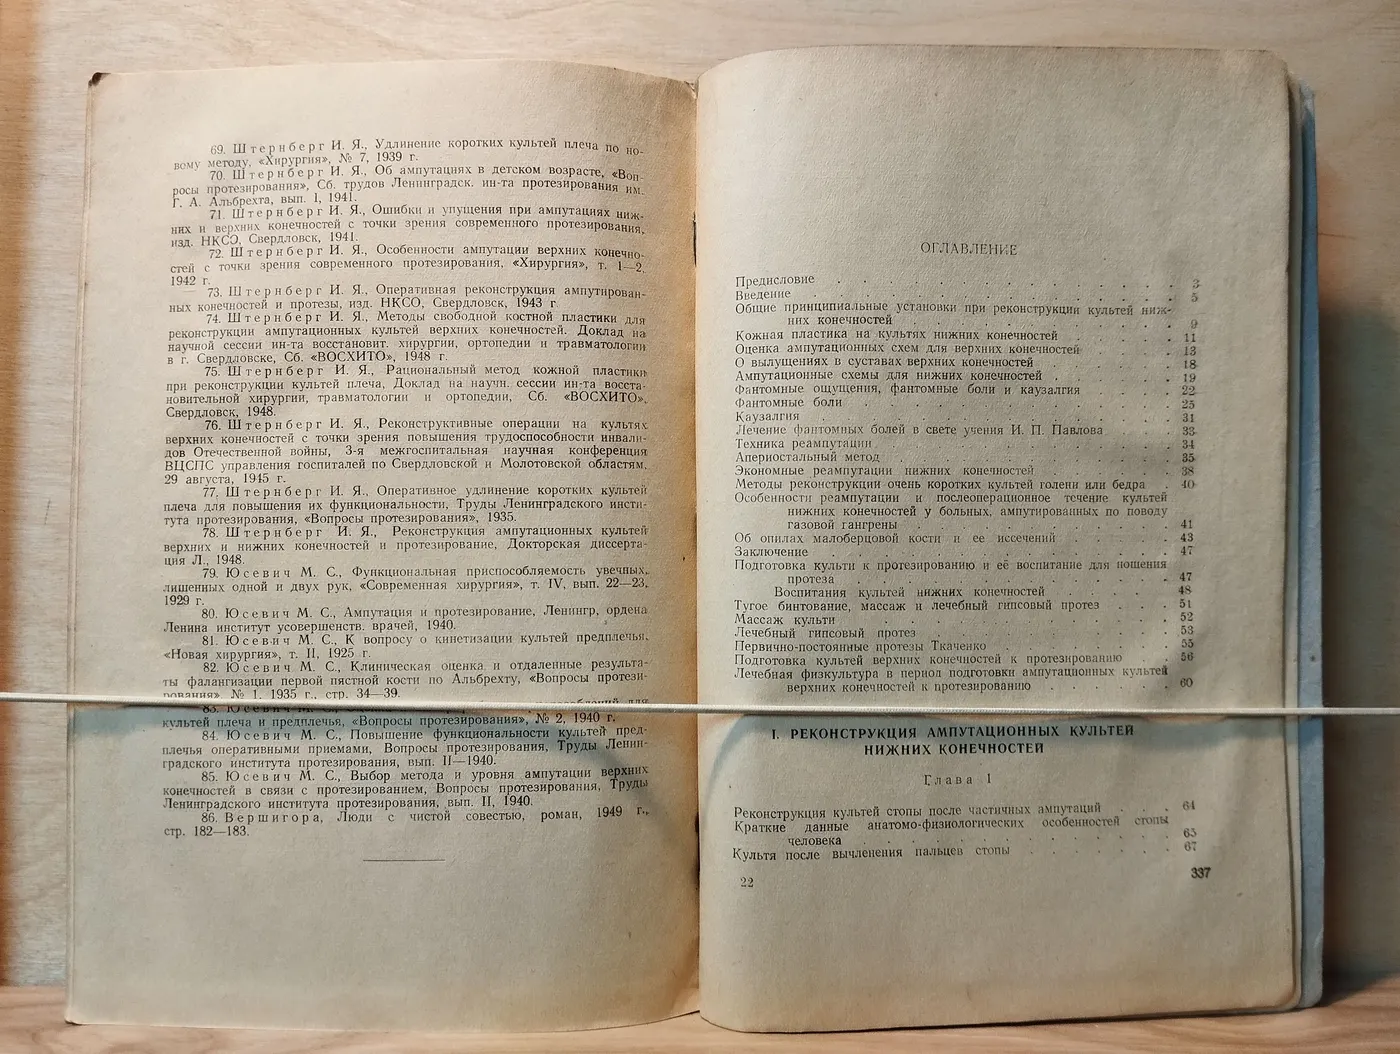 69. Штернберг И. Я., Удлинение коротких культей плеча по но-
вому методу, «Хирургия», № 7, 1939 г.
70. Штернберг И. Я., Об ампутациях в детском возрасте, «Воп-
росы протезирования», Сб. трудов Ленинградск. ин-та протезирования им.
Г. А. Альбрехта, вып. 1, 1941.
71. Штернберг И. Я., Ошибки и упущения при ампутациях ниж-
них и верхних конечностей с точки зрения современного протезирования,
изд. НКСО, Свердловск, 1941.
72. Штернберг И. Я., Особенности ампутации верхних конечно-
стей с точки зрения современного протезирования, «Хирургия», т. 1—2,
1942 г.
73. Штернберг И. Я., Оперативная реконструкция ампутирован-
ных конечностей и протезы, изд. НКСО, Свердловск, 1943 г
74. Штернберг И. Я., Методы свободной костной пластики для
реконструкции ампутационных культей верхних конечностей. Доклад на
научной сессии ин-та восстановит. хирургии, ортопедии и травматологии
в г. Свердловске, Сб. «ВОСХИТО», 1948 г.
75. Штернберг И. Я., Рациональный метод кожной пластики
при реконструкции культей плеча, Доклад на научн. сессии ин-та восста-
новительной хирургии, травматологии и ортопедии, Сб. «ВОСХИТО»,
Свердловск, 1948.
76. Штернберг И. Я., Реконструктивные операции на культях
верхних конечностей с точки зрения повышения трудоспособности инвали-
дов Отечественной войны, 3-я межгоспитальная научная конференция
ВЦСПС управления госпиталей по Свердловской и Молотовской областям,
29 августа, 1945 г.
77. Штернберг И. Я., Оперативное удлинение коротких культей
плеча для повышения их функциональности, Труды Ленинградского инсти-
тута протезирования, «Вопросы протезирования», 1935.
78. Штернберг И. Я., Реконструкция ампутационных культей
верхних и нижних конечностей и протезирование, Докторская диссерта-
ция Л., 1948.
79. Юсевич М. С., Функциональная приспособляемость увечных,
лишенных одной и двух рук, «Современная хирургия», т. IV, вып. 22—23,
1929 г.
80. Юсевич М. С., Ампутация и протезирование, Ленингр, ордена
Ленина институт усовершенств. врачей, 1940.
81. Юсевич М. С., К вопросу о кинетизации культей предплечья,
«Новая хирургия», т. II, 1925 г.
82. Юсевич М. С., Клиническая оценка и отдаленные результа-
ты фалангизации первой пястной кости по Альбрехту, «Вопросы протези-
рования», № 1, 1935 г., стр. 34—39.
83. Юсевич М. С.,
культей плеча и предплечья, «Вопросы протезирования», № 2, 1940 г.
84. Юсевич М. С., Повышение функциональности культей пред-
плечья оперативными приемами, Вопросы протезирования, Труды Ленин-
градского института протезирования, вып. II—1940.
85. Юсевич М. С., Выбор метода и уровня ампутации верхних
конечностей в связи с протезированием, Вопросы протезирования, Труды
Ленинградского института протезирования, вып. II, 1940.
86. Вершигора, Люди с чистой совестью, роман, 1949 г.,
стр. 182—183.
ОГЛАВЛЕНИЕ
Предисловие . . . . . . . . . . . . 3
Введение . . . . . . . . . . . . 5
Общие принципиальные установки при реконструкции культей ниж-
них конечностей . . . . . . . . . . 9
Кожная пластика на культях нижних конечностей . . . . . 11
Оценка ампутационных схем для верхних конечностей . . . . 13
О вылущениях в суставах верхних конечностей . . . . . 18
Ампутационные схемы для нижних конечностей . . . . . 19
Фантомные ощущения, фантомные боли и каузалгия . . . . 22
Фантомные боли . . . . . . . . . . . 25
Каузалгия . . . . . . . . . . . . 31
Лечение фантомных болей в свете учения И. П. Павлова . . . 33
Техника реампутации . . . . . . . . . . 34
Апериостальный метод . . . . . . . . . . 35
Экономные реампутации нижних конечностей . . . . . 38
Методы реконструкции очень коротких культей голени или бедра . 40
Особенности реампутации и послеоперационное течение культей
нижних конечностей у больных, ампутированных по поводу
газовой гангрены . . . . . . . . . . 41
Об опилах малоберцовой кости и ее иссечений . . . . . 43
Заключение . . . . . . . . . . . . 47
Подготовка культи к протезированию и её воспитание для ношения
протеза . . . . . . . . . . . . 47
Воспитания культей нижних конечностей . . . . . 48
Тугое бинтование, массаж и лечебный гипсовый протез . . . 51
Массаж культи . . . . . . . . . . . 52
Лечебный гипсовый протез . . . . . . . . . 53
Первично-постоянные протезы Ткаченко . . . . . . 55
Подготовка культей верхних конечностей к протезированию . . 56
Лечебная физкультура в период подготовки ампутационных культей
верхних конечностей к протезированию . . . . . 60
I. РЕКОНСТРУКЦИЯ АМПУТАЦИОННЫХ КУЛЬТЕЙ
НИЖНИХ КОНЕЧНОСТЕЙ
Глава 1
Реконструкция культей стопы после частичных ампутаций . . . 64
Краткие данные анатомо-физиологических особенностей стопы
человека . . . . . . . . . . . . 65
Культя после вычленения пальцев стопы . . . . . . 67
22
337